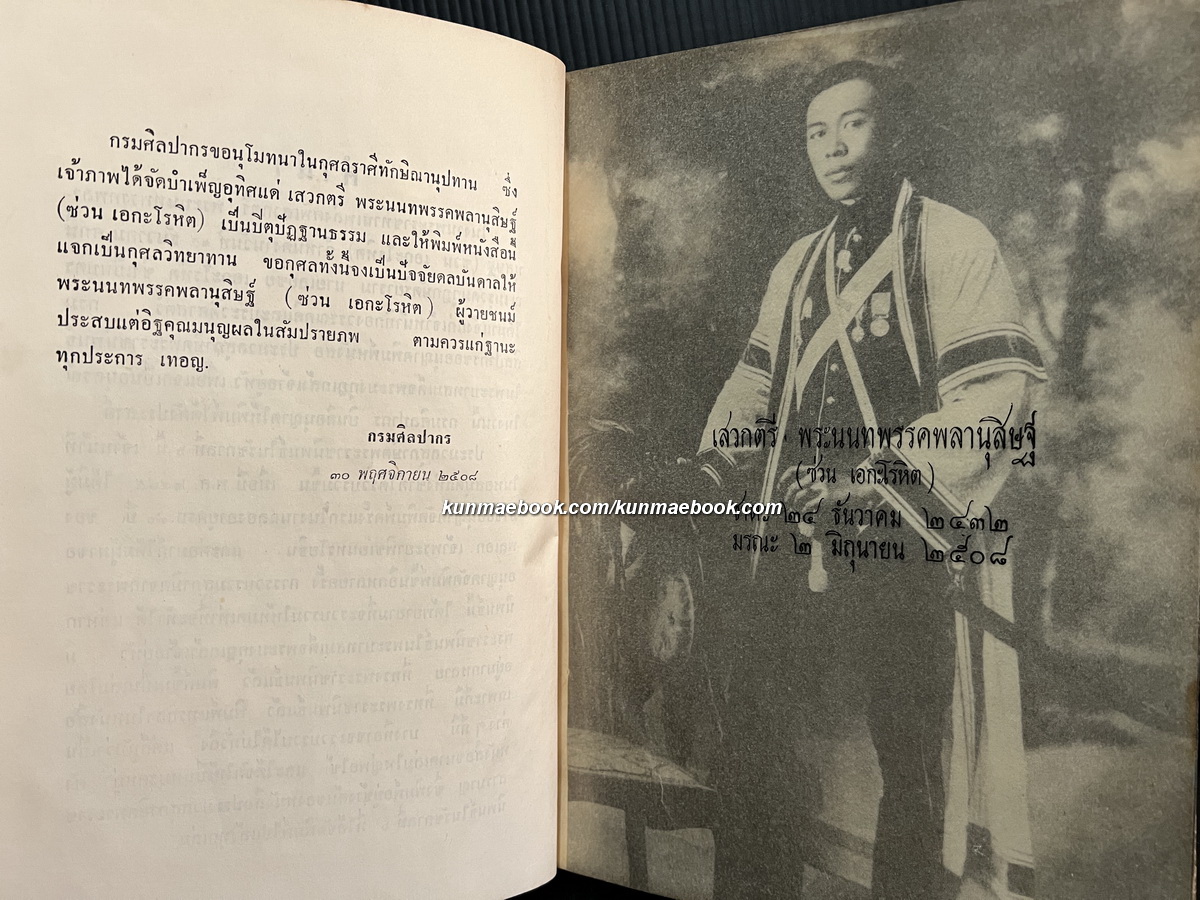 กรมศิลปากรขอนุโมทนาในกุศลราศีทักษิณานุปทาน ซึ่ง
เจ้าภาพได้จัดบำเพ็ญอุทิศแด่ เสวกตรี พระนนทพรรคพลานุสิษฐ์
(ซ่วน เอกะโรหิต) เป็นปีตุปัฏฐานธรรม และให้พิมพ์หนังสือนี้
แจกเป็นกุศลวิทยาทาน ขอกุศลทั้งนี้จงเป็นปัจจัยดลบันดาลให้
พระนนทพรรคพลานุสิษฐ์ (ซ่วน เอกะโรหิต) ผู้วายชนม์
ประสบแต่อิฐคุณมนุญผลในสัมปรายภพ ตามควรแก่ฐานะ
ทุกประการ เทอญ.
กรมศิลปากร
๓๐ พฤศจิกายน ๒๕๐๘
เสวกตรี พระนนทพรรคพลานุสิษฐ์
(ซ่วน เอกะโรหิต)
kunmaebook.com/kunmaebook.com
๒๔ ธันวาคม ๒๔๓๒
มรณะ ๒ มิถุนายน ๒๕๐๘